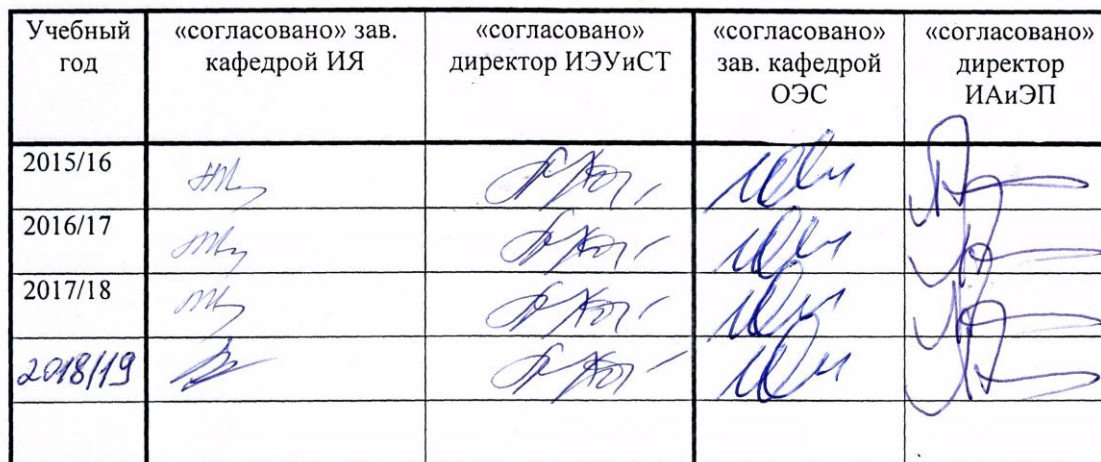 Учебный год
«согласовано» зав. кафедрой ИЯ
«согласовано» директор ИЭУиСТ
«согласовано» зав. кафедрой ОЭС
«согласовано» директор ИАиЭП
2015/16
2016/17
2017/18
2018/19